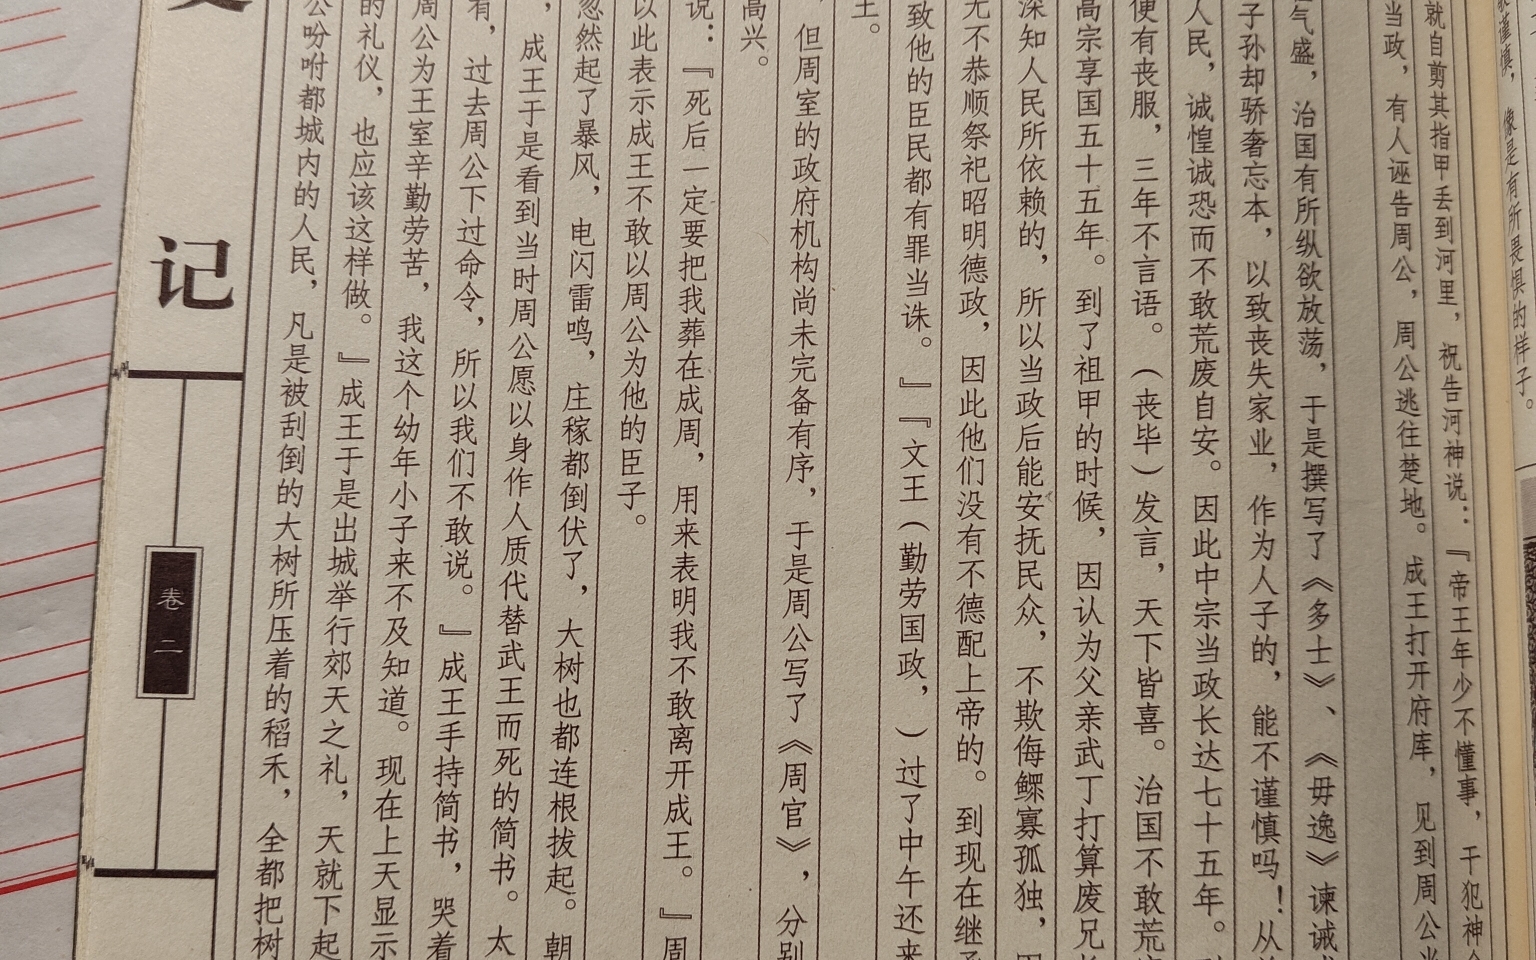 谨慎，像是有所畏惧的样子。
就自剪其指甲丢到河里，祝告河神说：『帝王年少不懂事，干犯神
当政，有人诬告周公，周公逃往楚地。成王打开府库，见到周公当
气盛，治国有所纵欲放荡，于是撰写了《多士》、《毋逸》谏诫
子孙却骄奢忘本，以致丧失家业，作为人子的，能不谨慎吗！从
人民，诚惶诚恐而不敢荒废自安。因此中宗当政长达七十五年。
便有丧服，三年不言语。（丧毕）发言，天下皆喜。治国不敢荒
高宗享国五十五年。到了祖甲的时候，因认为父亲武丁打算废兄
深知人民所依赖的，所以当政后能安抚民众，不欺侮鳏寡孤独，
无不恭顺祭祀昭明德政，因此他们没有不德配上帝的。到现在继
致他的臣民都有罪当诛。』『文王（勤劳国政，）过了中午还来
王。
，但周室的政府机构尚未完备有序，于是周公写了《周官》，分别
高兴。
说：『死后一定要把我葬在成周，用来表明我不敢离开成王。』周
以此表示成王不敢以周公为他的臣子。
忽然起了暴风，电闪雷鸣，庄稼都倒伏了，大树也都连根拔起。朝
，成王于是看到当时周公愿以身作人质代替武王而死的简书。太
有，过去周公下过命令，所以我们不敢说。』成王手持简书，哭着
周公为王室辛勤劳苦，我这个幼年小子来不及知道。现在上天显示
的礼仪，也应该这样做。』成王于是出城举行郊天之礼，天就下起
公吩咐都城内的人民，凡是被刮倒的大树所压着的稻禾，全都把树
记
卷二